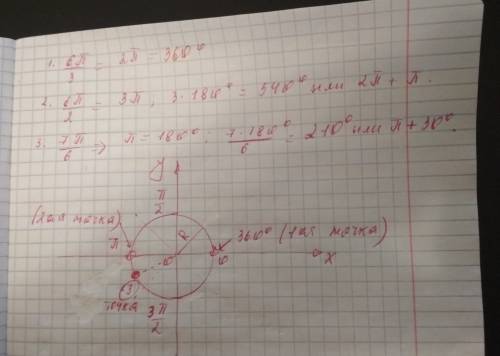 1. 6π/3 = 2π = 360°
2. 6π/2 = 3π ; 3·180° = 540° или 2π + π.
3. 7π/6 ⇒ π = 180° ; 7·180°/6 = 210° или π + 30°.
y
π/2
(2ая точка)
π
R
360° (1ая точка)
0
0
x
3
точка
3π/2